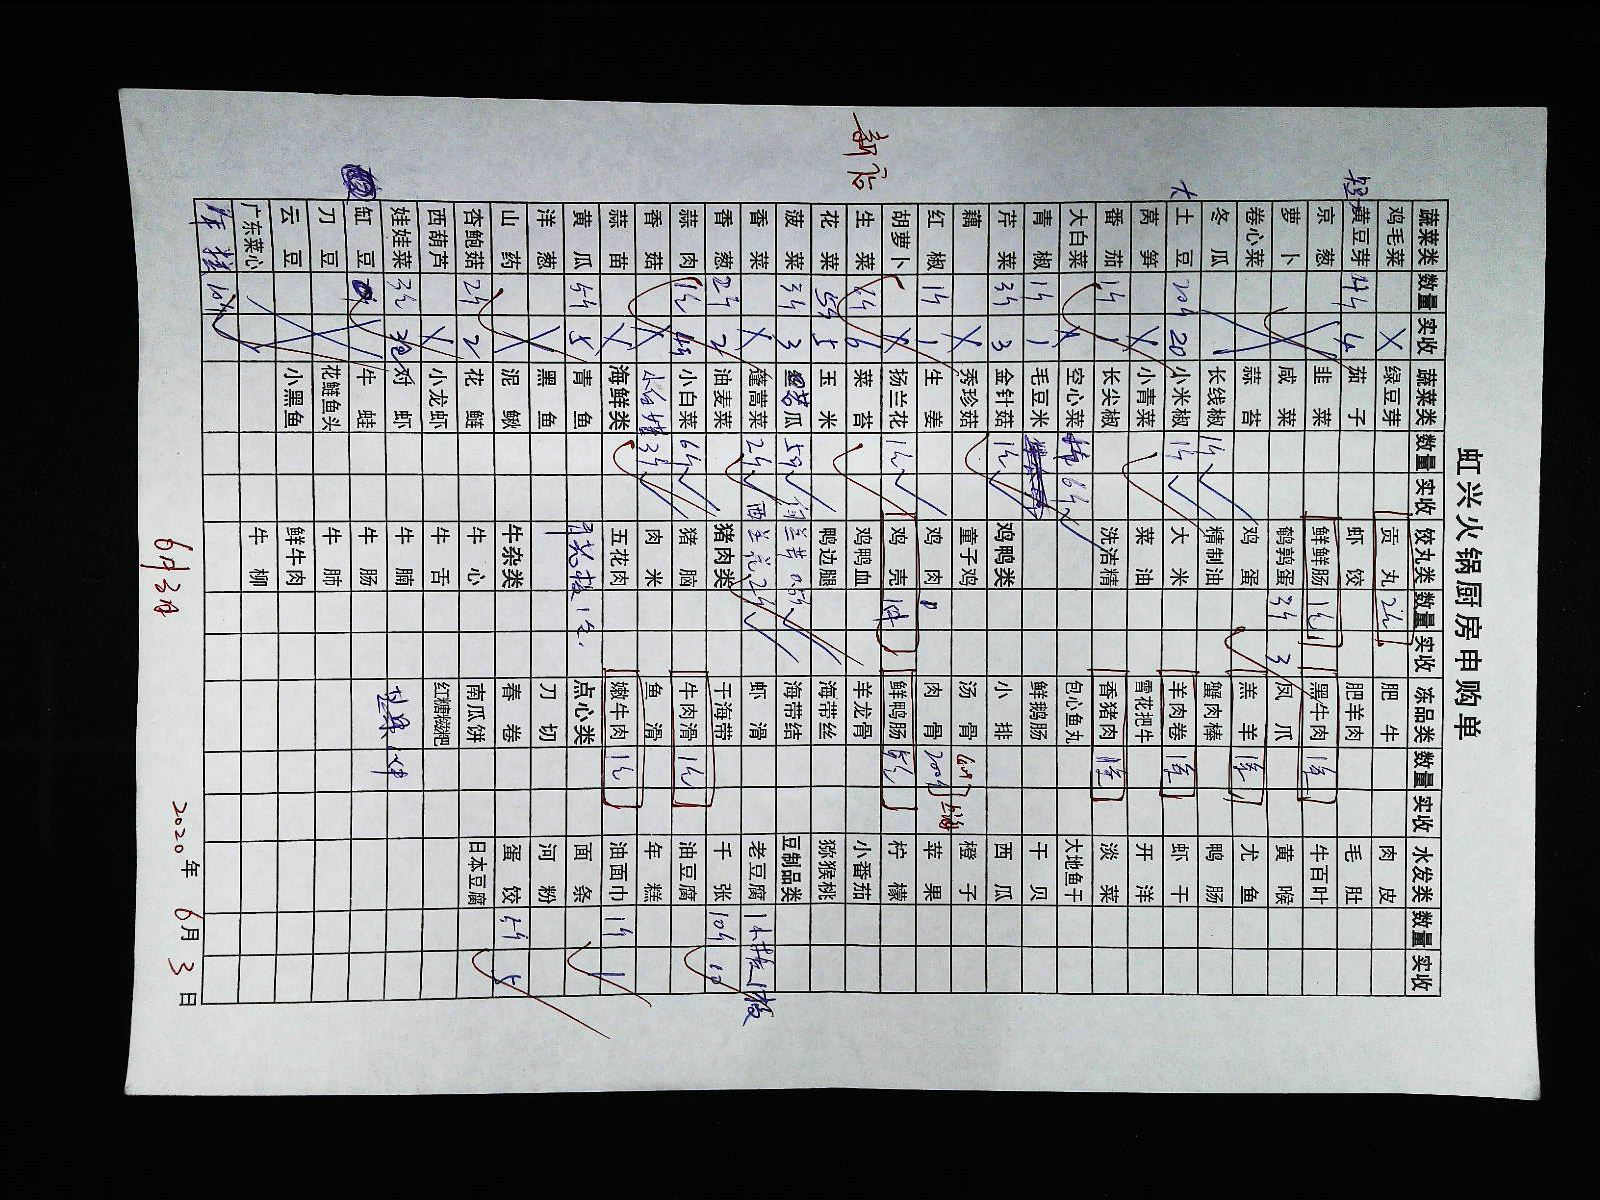 虹兴火锅厨房申购单
新店
蔬菜类 数量 实收 蔬菜类 数量 实收 饺丸类 数量 实收 冻品类 数量 实收 水发类 数量 实收
鸡毛菜 X 绿豆芽 贡丸 2包 肥牛 肉皮
黄豆芽 4斤 4 茄子 虾饺 肥羊肉 毛肚
京葱 韭菜 鲜鲜肠 1包 黑牛肉 1条 牛百叶
萝卜 咸菜 鹌鹑蛋 3斤 3 凤爪 黄喉
卷心菜 蒜苔 鸡蛋 羔羊 1条 尤鱼
冬瓜 长线椒 1斤 精制油 蟹肉棒 鸭肠
大土豆 20斤 20 小米椒 1斤 大米 羊肉卷 1条 虾干
莴笋 X 小青菜 菜油 雪花把牛 开洋
番茄 1斤 1 长尖椒 洗洁精 香猪肉 1条 淡菜
大白菜 X 空心菜 6斤 包心鱼丸 大地鱼干
青椒 1斤 1 毛豆米 鲜鹅肠 干贝
芹菜 3斤 3 金针菇 1包 鸡鸭类 小排 西瓜
藕 X 秀珍菇 童子鸡 汤骨 橙子
红椒 1斤 1 生姜 鸡肉 肉骨 200斤 苹果
胡萝卜 X 扬兰花 1包 鸡壳 1件 鲜鸭肠 5包 柠檬
生菜 6斤 6 菜苔 鸡鸭血 羊龙骨 小番茄
花菜 5斤 5 玉米 鸭边腿 海带丝 猕猴桃
菠菜 3斤 3 苦瓜 5斤 海带结 豆制品类
香菜 X 蓬蒿菜 2斤 西兰花 2斤 虾滑 老豆腐 1板
香葱 2斤 2 油麦菜 猪肉类 干海带 千张 10斤 10
蒜肉 1包 小白菜 6斤 猪脑 牛肉滑 1包 油豆腐
香菇 X 3斤 肉米 鱼滑 年糕
蒜苗 X 海鲜类 五花肉 嫩牛肉 1包 油面巾 1斤 1
黄瓜 5斤 5 青鱼 点心类 面条
洋葱 X 黑鱼 刀切 河粉
山药 X 泥鳅 牛杂类 春卷 蛋饺 5斤 5
杏鲍菇 2斤 2 花鲢 牛心 南瓜饼 日本豆腐
西葫芦 X 小龙虾 牛舌 红糖糍粑
娃娃菜 3斤 对虾 牛腩
缸豆 牛蛙 牛肠
刀豆 花鲢鱼头 牛肺
云豆 小黑鱼 鲜牛肉
广东菜心 牛柳
6月3日
2020年 6月 3日